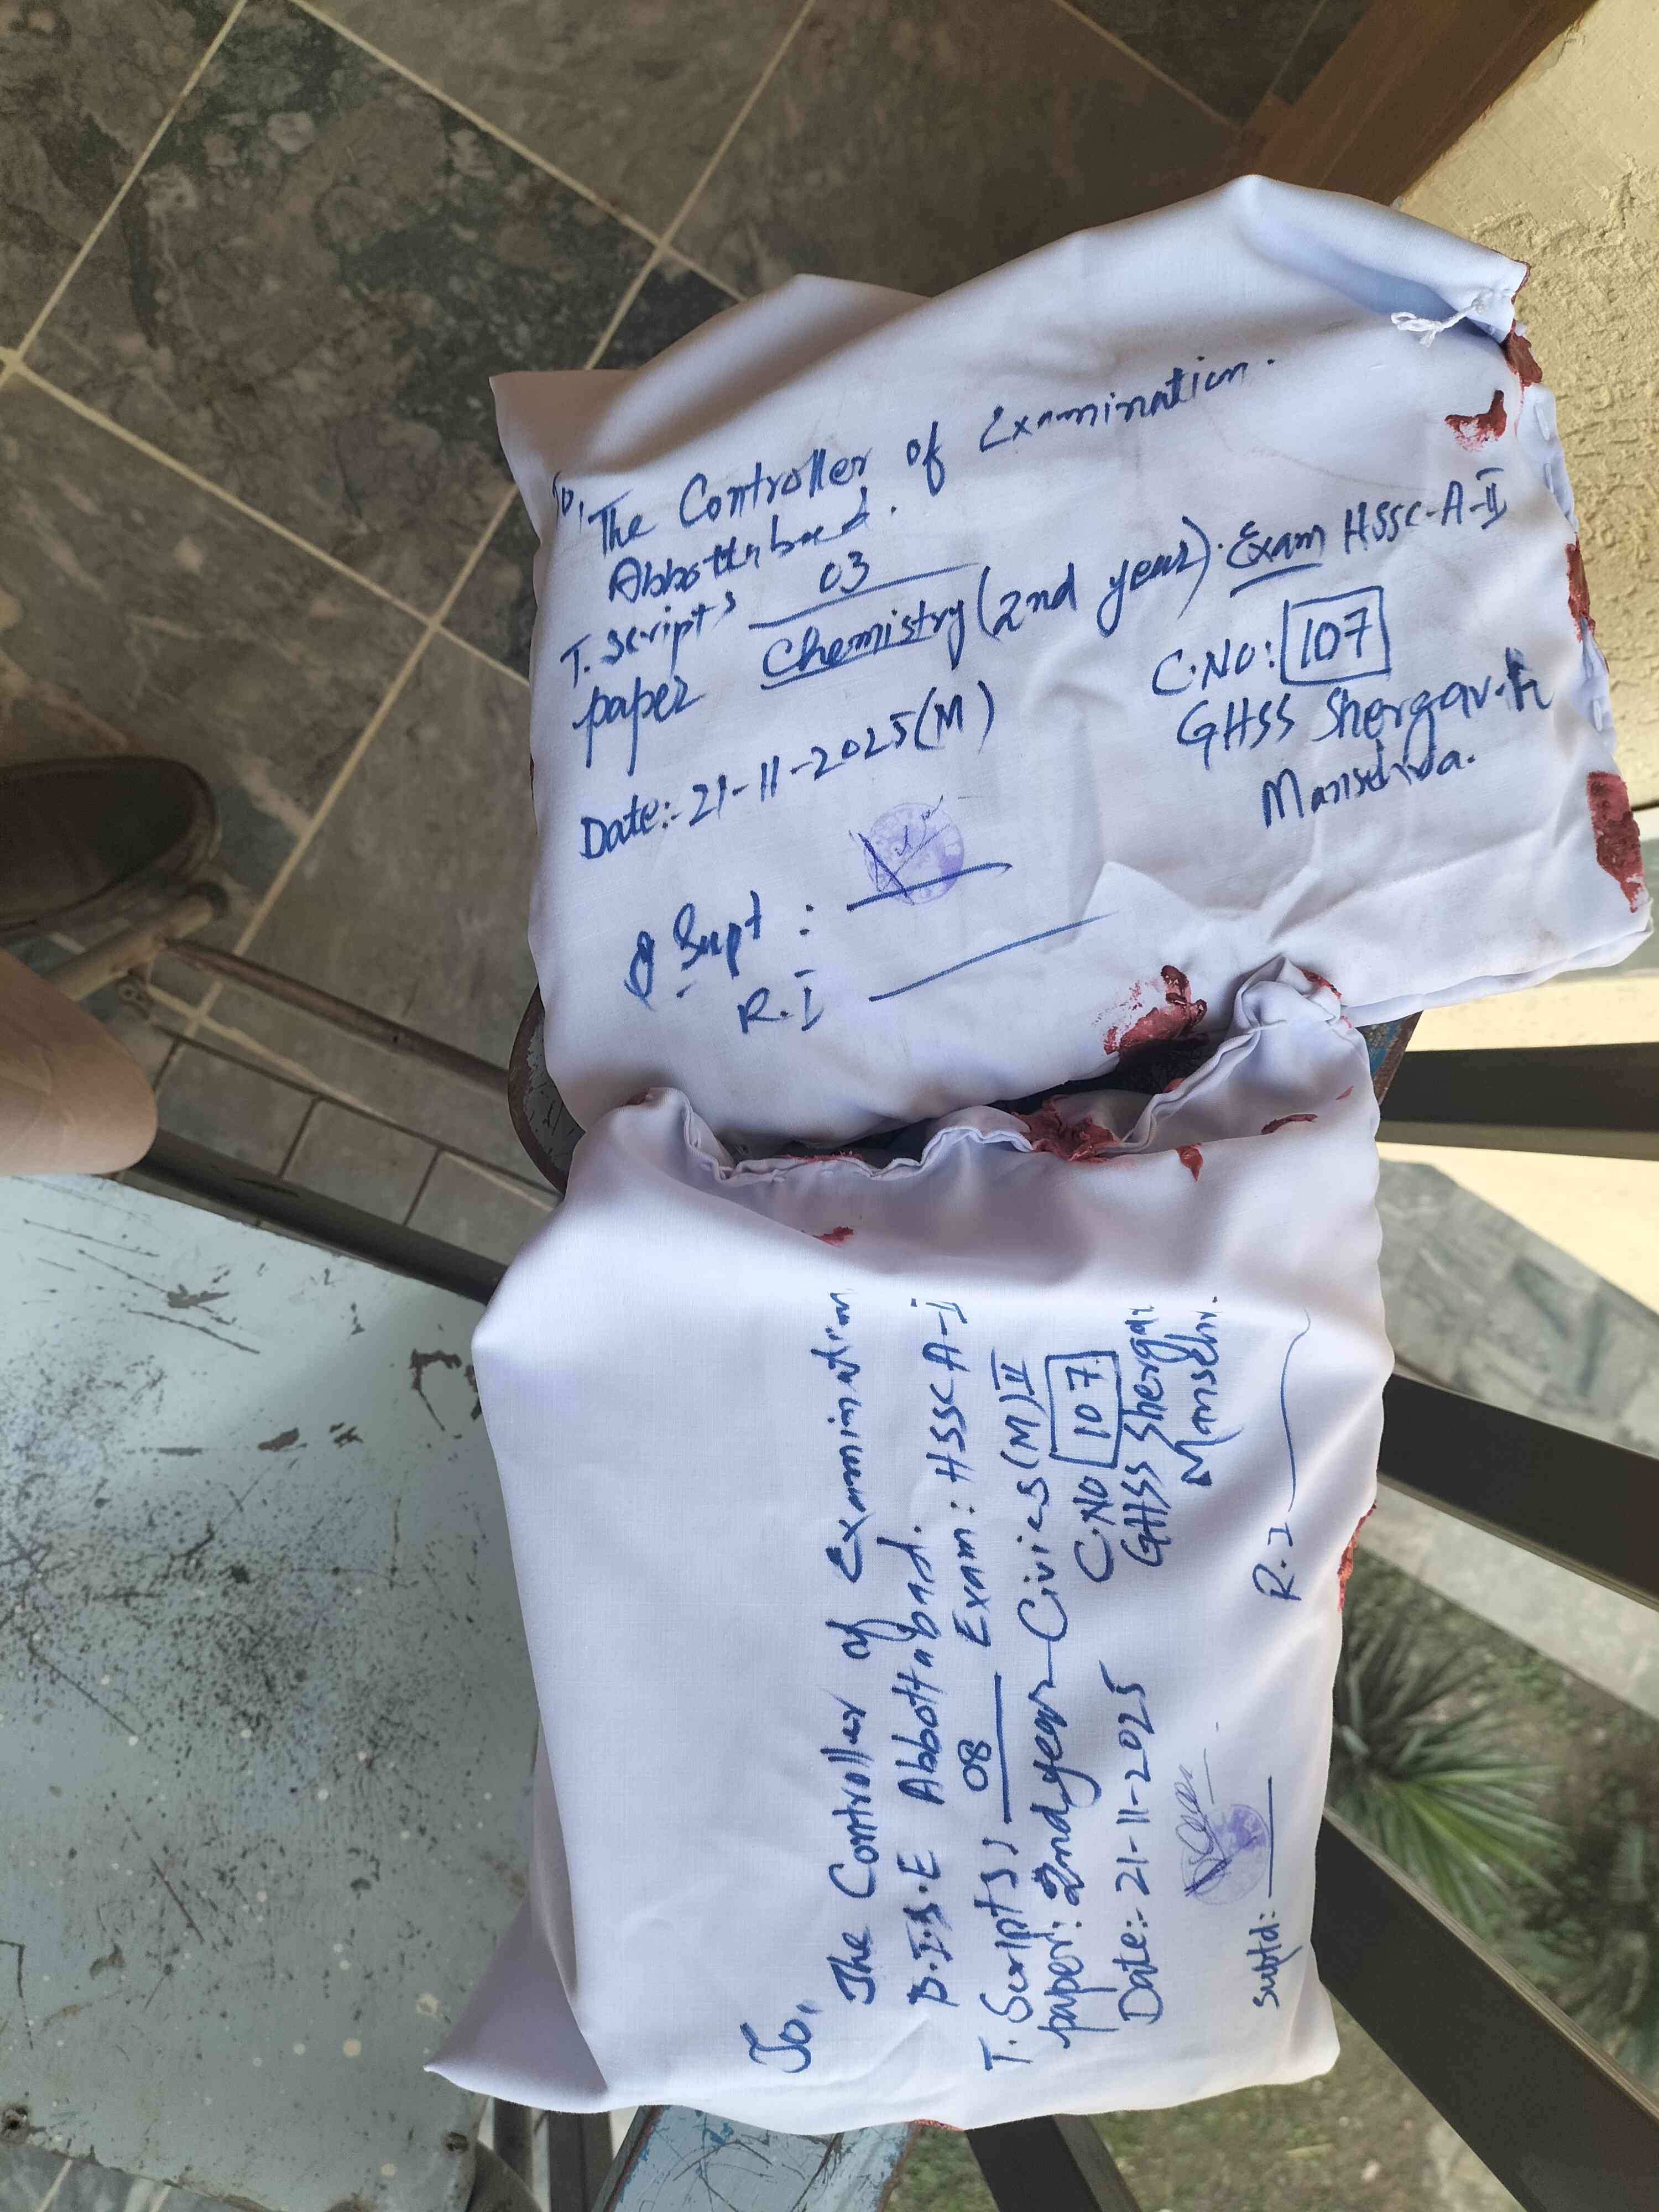 To,
The Controller of Examination.
Abbottabad.
T. Scripts 03
paper Chemistry (2nd year). Exam HSSC-A-II
Date:- 21-11-2025(M)
C.NO: 107
GHSS Shergarh
Mansehra.
Supt :
R.I
To,
The Controller of Examination
B.I.S.E Abbottabad.
T. Scripts, 08 Exam: HSSC A-I
paper: 2nd year Civics (M) II
Date:- 21-11-2025
C.NO 107
GHSS Shergar
Mansehr.
Suptd:
R.I